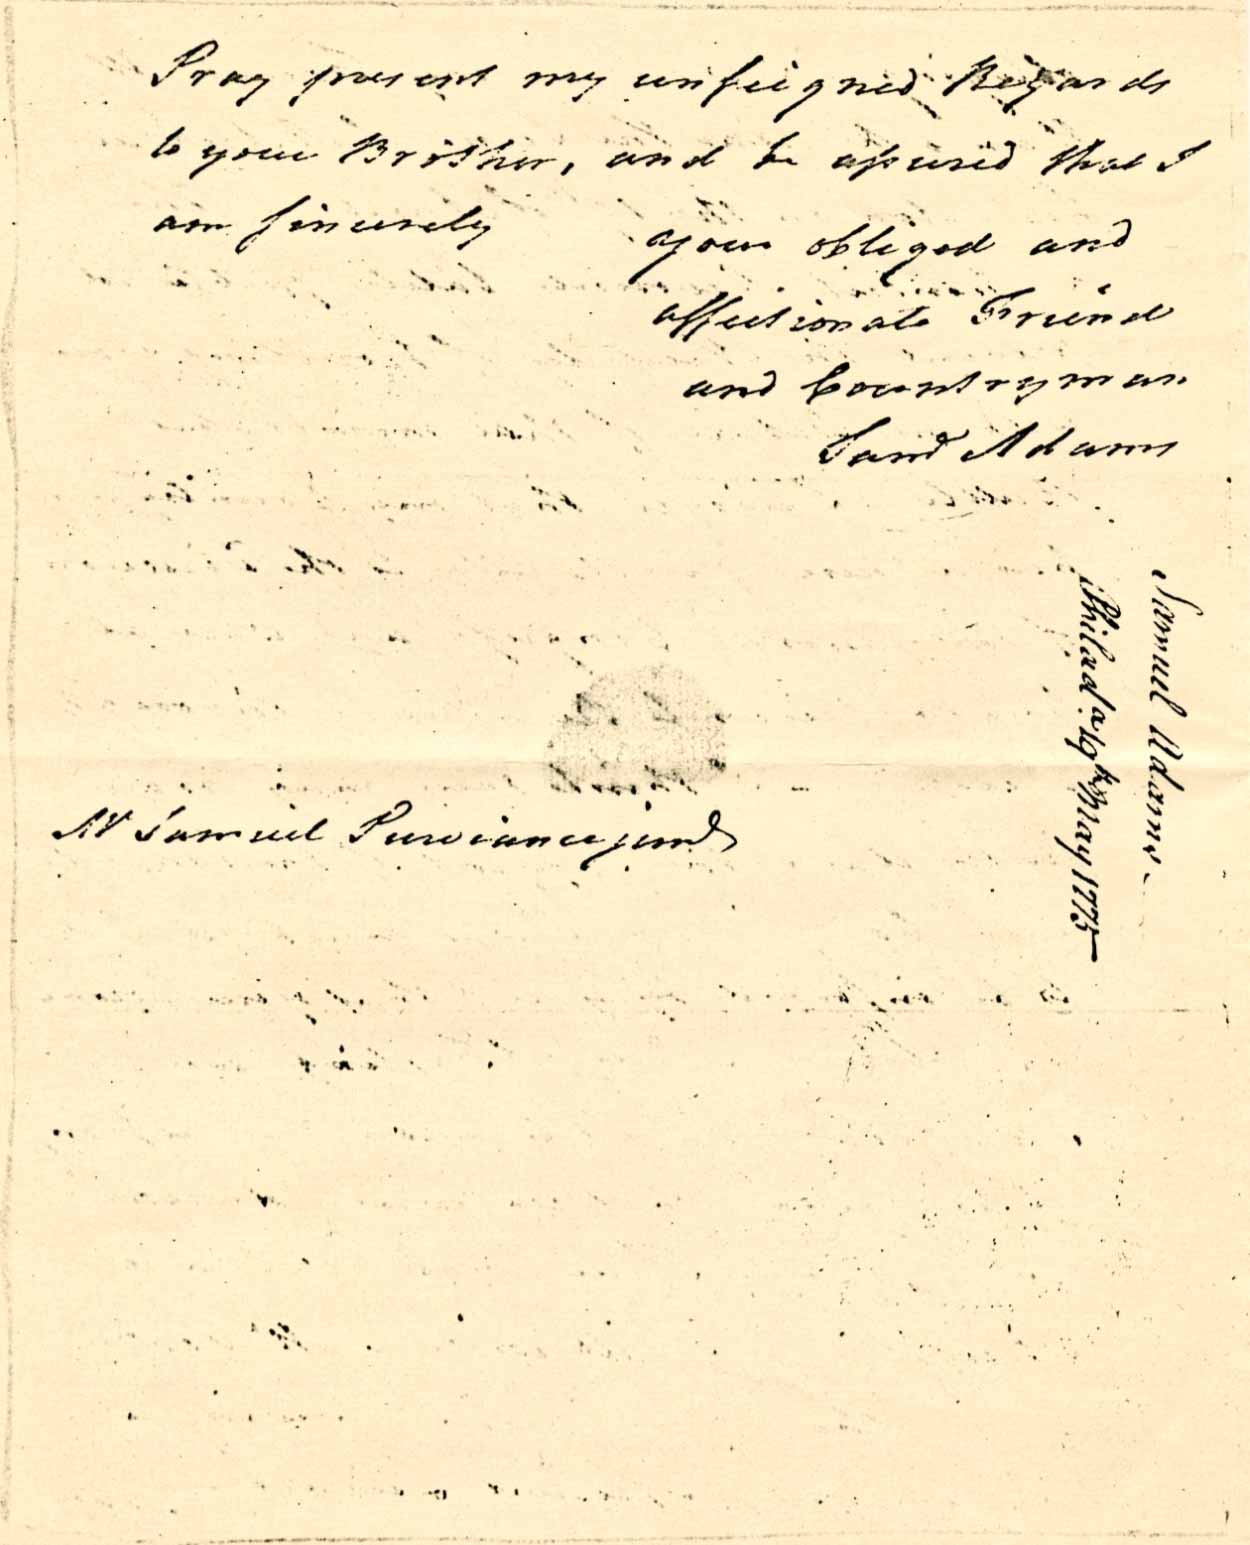 Pray present my unfeigned Regards
to your Brother, and be assured that I
am sincerely your obliged and
affectionate Friend
and Countryman
Saml Adams
Mr Samuel Purviance junr
Samuel Adams
Philada. May 1775